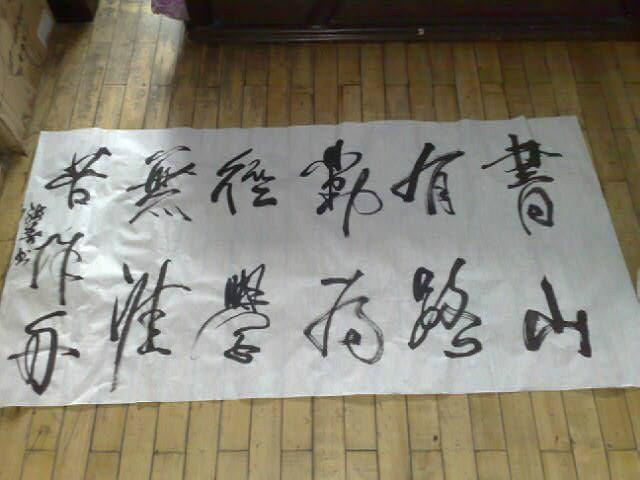 書山
有路
勤為
徑學
無涯
苦作舟